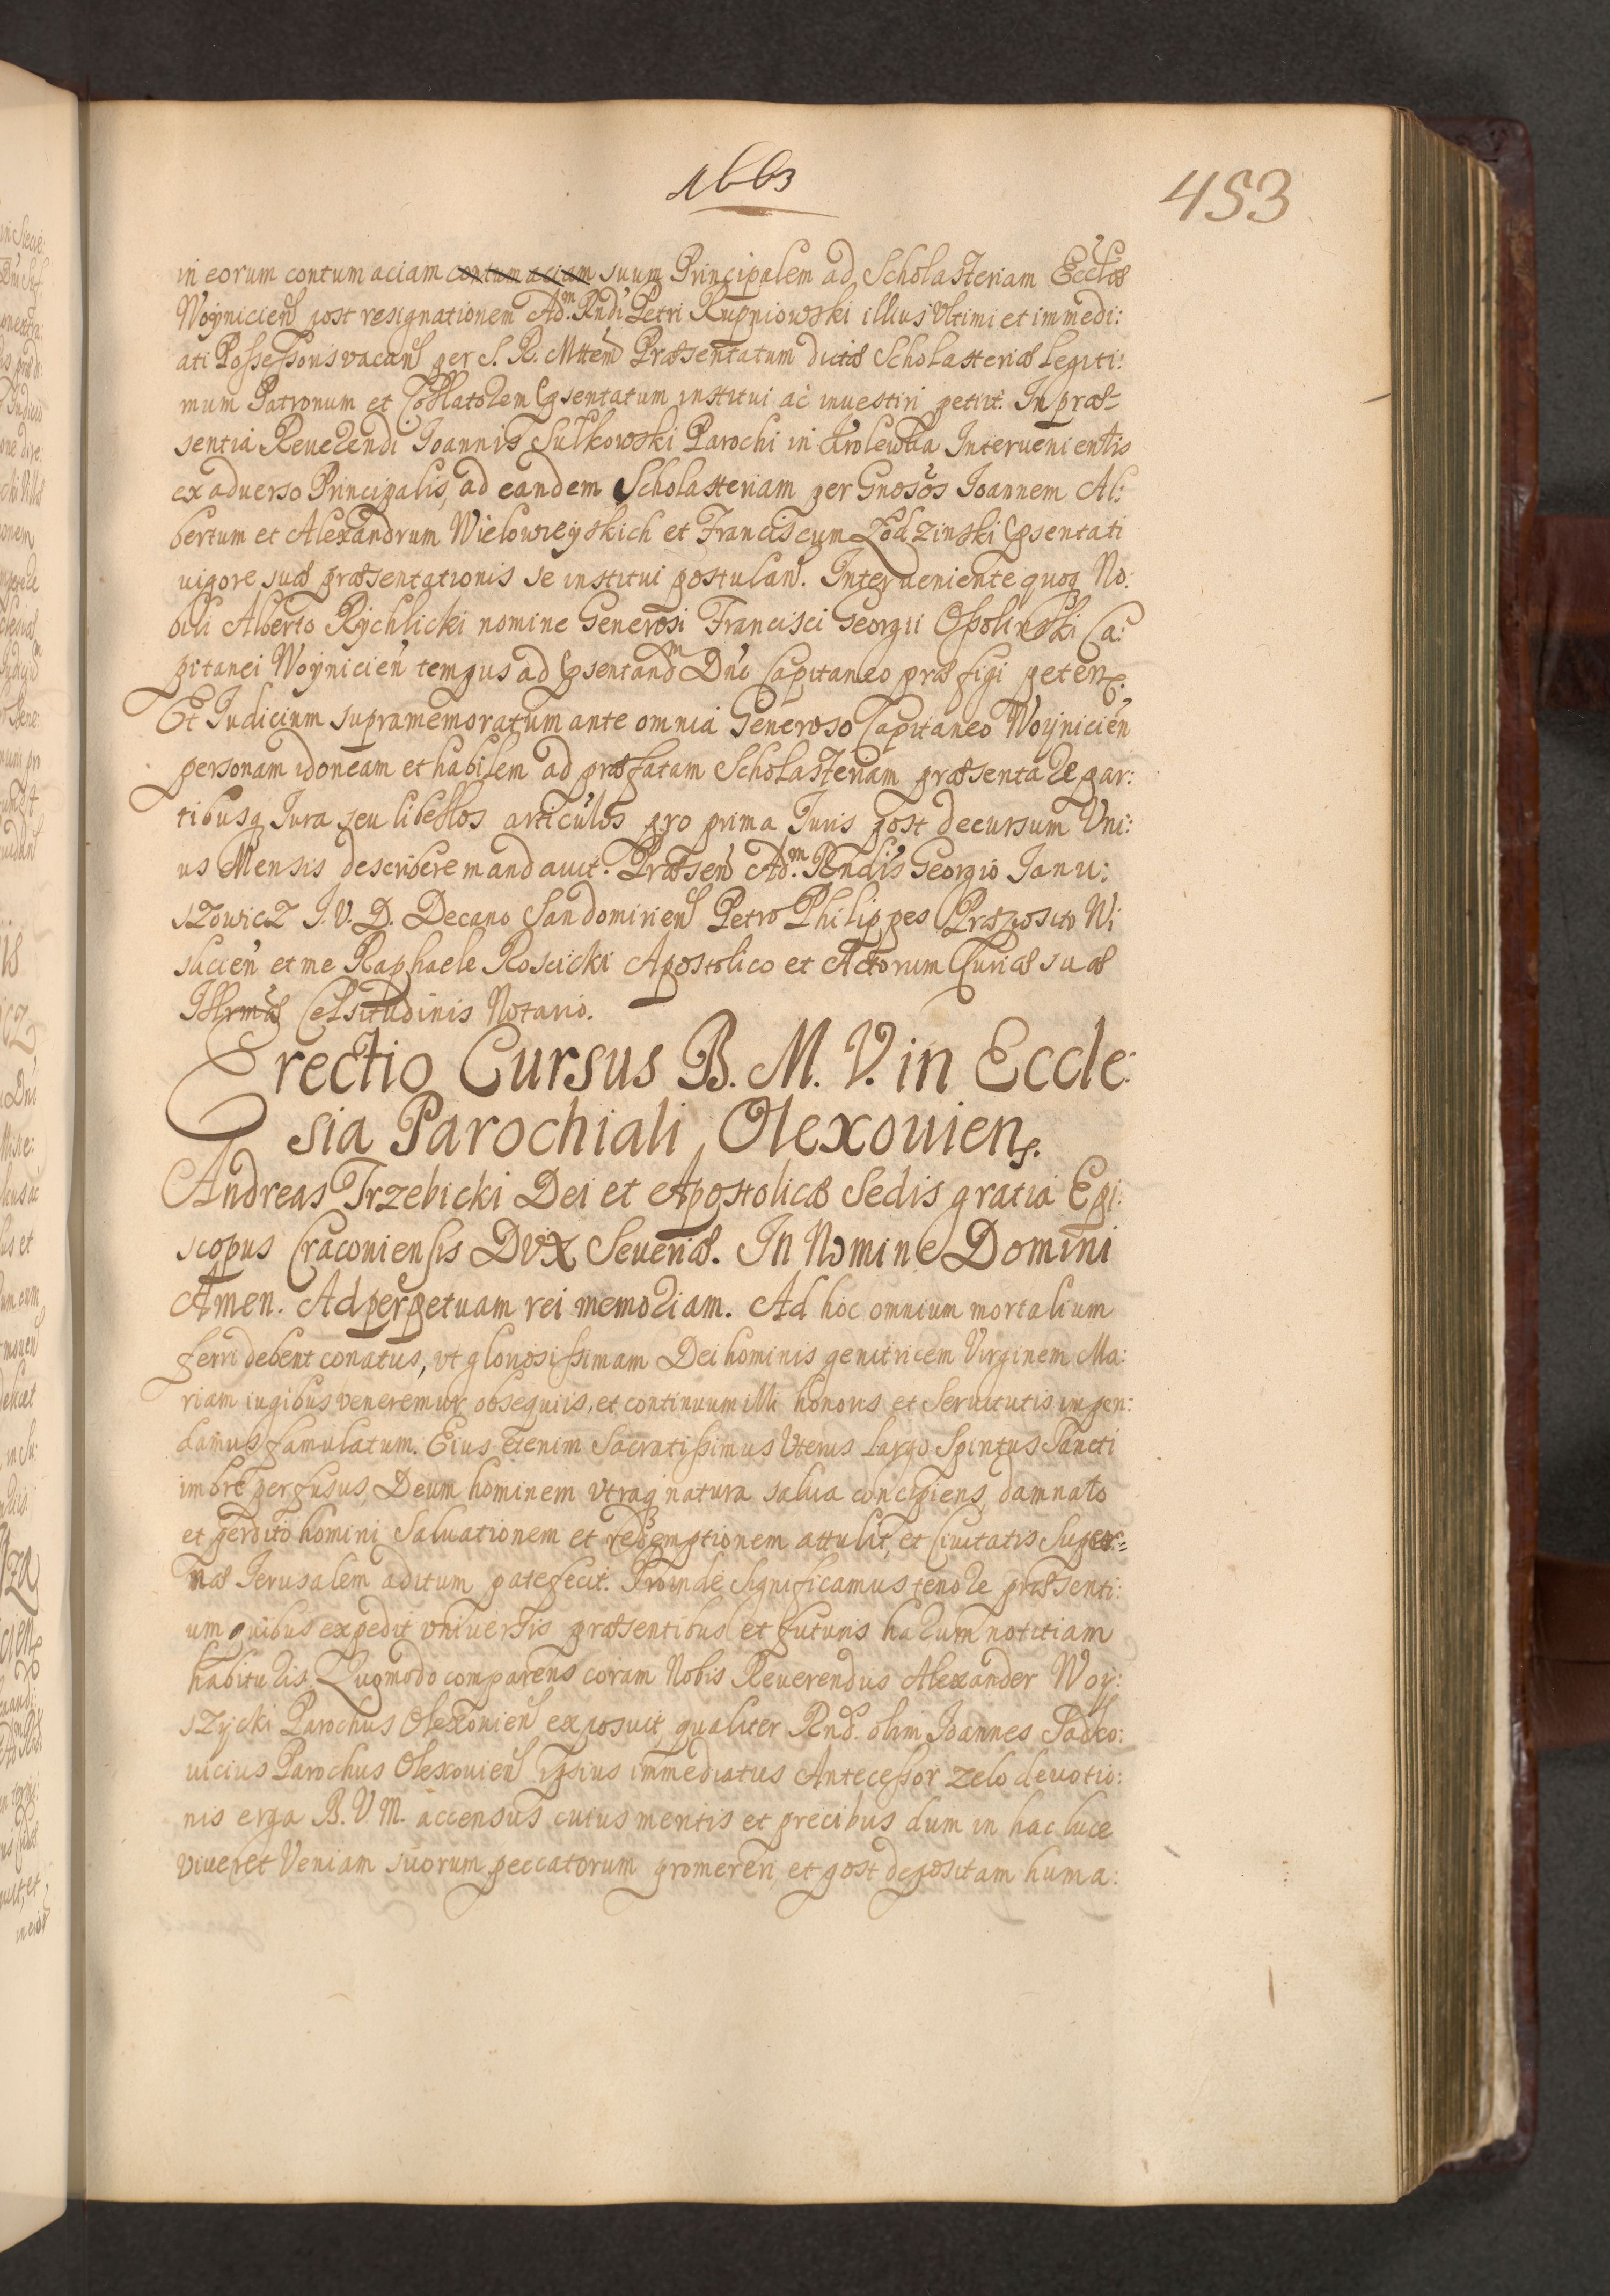 1663
453
in eorum contumaciam contumaciam suum Principalem ad Scholasteriam Eccliæ
Woyniciens post resignationem Ad.m Rndi Petri Rupniowski illius Vltimi et immedi:
ati Possessoris vacans per S. R. Mttem Præsentatum dictæ Scholasteriæ legiti:
mum Patronum et Collatorem psentatum institui ac inuestiri petiit. In præ-
sentia Reuerendi Joannis Sulkowski Parochi in Interuenientis
ex aduerso Principalis, ad eandem Scholasteriam per Gnosos Joannem Al:
bertum et Alexandrum Wielowieyskich et Franciscum psentati
uigore suæ præsentationis se institui postulans. Interueniente quoq No:
bili Alberto Rychlicki nomine Generosi Francisci Georgii Ossolinski Ca:
pitanei Woynicien tempus ad psentandm Dno Capitaneo præfigi peten.
Et Iudicium supramemoratum ante omnia Generoso Capitaneo Woynicien
personam idoneam et habilem ad præfatam Scholasteriam præsentare par:
tibusq Iura seu libellos articulos pro prima Juris post decursum Vni:
us Mensis describere mandauit. Præsen Ad.m Rndis Georgio Janu:
szowicz J. V. D. Decano Sandomiriens Petro Philippes Præposito Wi
slicien et me Raphaele Roscicki Apostolico et Actorum Curiæ suæ
Illrmæ Celsitudinis Notario.
Erectio Cursus B. M. V. in Eccle:
sia Parochiali Olexouien.
Andreas Trzebicki Dei et Apostolicæ Sedis gratia Epi:
scopus Cracouiensis Dux Seueriæ. In Nomine Domini
Amen. Ad perpetuam rei memoriam. Ad hoc omnium mortalium
ferri debent conatus, vt gloriosissimam Dei hominis genitricem Virginem Ma:
riam iugibus veneremur obsequiis, et continuum illi honoris et Seruitutis impen:
damus famulatum. Eius etenim Sacratissimus Vterus largo Spiritus Sancti
imbre perfusus Deum hominem vtraq natura salua concipiens, damnato
et perdito homini Saluationem et redemptionem attulit, et Ciuitatis Super=
næ Ierusalem aditum patefecit. Proinde significamus tenore præsenti:
um quibus expedit vniuersis præsentibus et futuris harum notitiam
habituris. Quomodo comparens coram Nobis Reuerendus Alexander Woy:
szycki Parochus Olexouiens exposuit, qualiter Rnd. olim Joannes Sadko:
uicius Parochus Olexouiens ipsius immediatus Antecessor zelo deuotio:
nis erga B. V. M. accensus cuius meritis et precibus dum in hac luce
viueret Veniam suorum peccatorum promereri et post depositam huma: